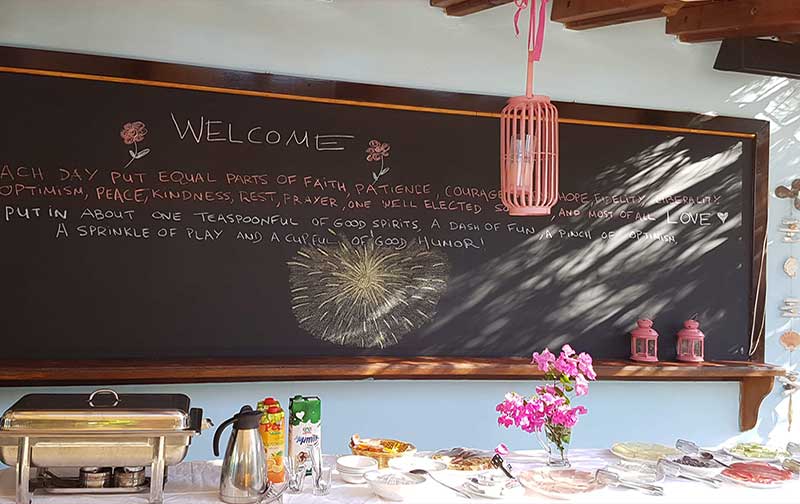 WELCOME
ACH DAY PUT EQUAL PARTS OF FAITH, PATIENCE, COURAGE HOPE, FIDELITY, LIBERALITY
OPTIMISM, PEACE, KINDNESS, REST, PRAYER, ONE WELL ELECTED SO , AND MOST OF ALL LOVE ♥
PUT IN ABOUT ONE TEASPOONFUL OF GOOD SPIRITS, A DASH OF FUN, A PINCH OF OPTIMISM,
A SPRINKLE OF PLAY AND A CUPFUL OF GOOD HUMOR!